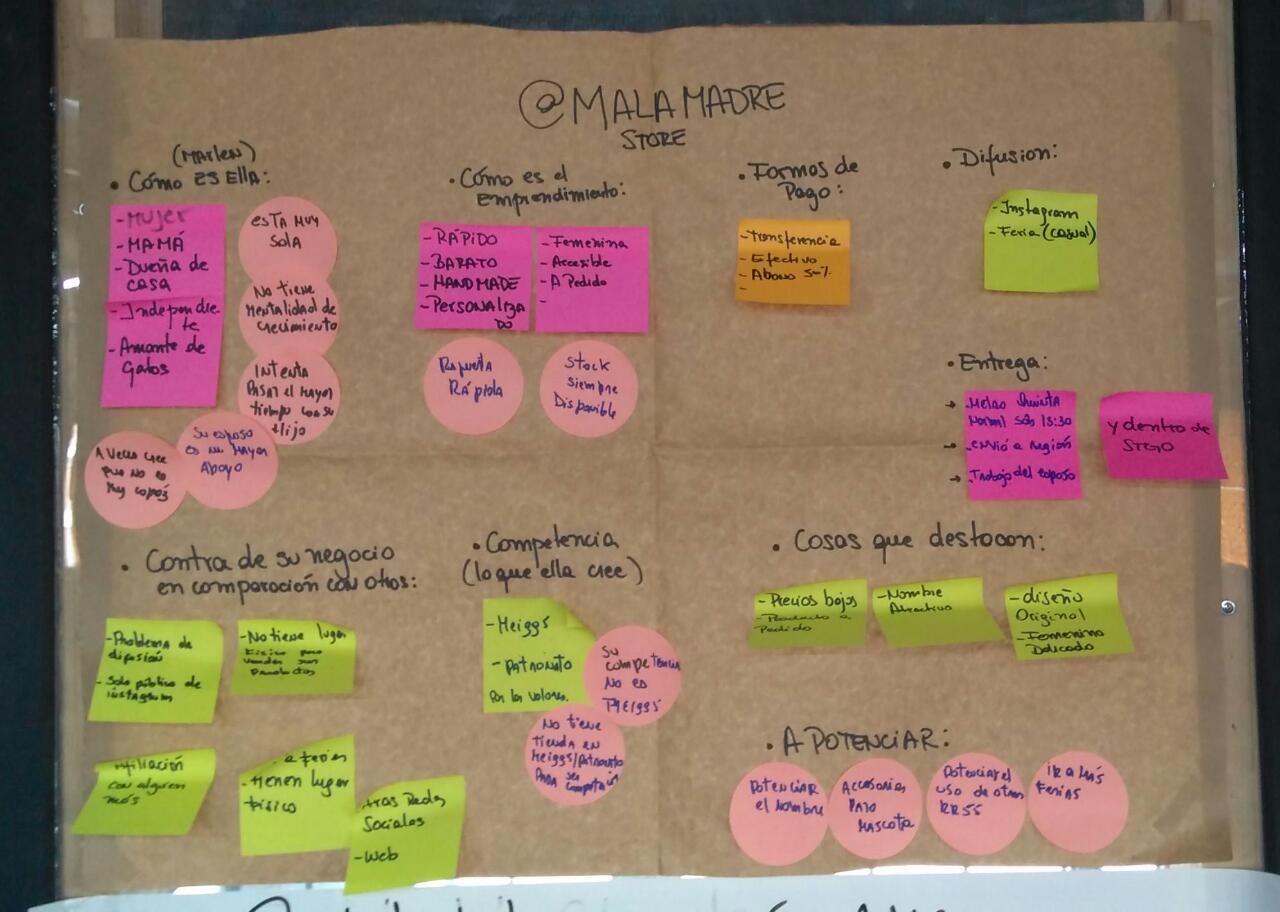 @MALAMADRE
STORE
(Marlen)
• Cómo ES Ella:
- Mujer
- MAMÁ
- Dueña de
casa
- Independie
te
- Amante de
Gatos
ESTA MUY
SOLA
No tiene
Mentalidad de
crecimiento
INTENTA
PASAR el MAYOR
tiempo con su
Hijo
Su esposo
es su Mayor
Apoyo
A Veces cree
que no es
muy capaz
• Cómo es el
emprendimiento:
- RÁPIDO
- BARATO
- HANDMADE
- PERSONALIZA
DO
- Femenina
- Accesible
- A Pedido
-
Rápida
Stock
siempre
Disponible
• Formas de
Pago:
- Transferencia
- Efectivo
- Abono 50%
-
• Difusion:
- Instagram
- Feria (casual)
• Entrega:
→ Metro Quinta
Normal Sáb 18:30
→ envió a región
→ Trabajo del esposo
y dentro de
STGO
• Contra de su negocio
en comparación con otros:
- Problema de
difusión
- Solo público de
instagram
- No tiene lugar
físico para
vender sus
productos
con alguien
más
- tienen lugar
físico
Redes
Sociales
- Web
• Competencia
(lo que ella cree)
- Meiggs
- Patronato
Por los valores.
Su
competencia
No es
MEIGGS
No tiene
tienda en
Meiggs/Patronato
PARA ser
competencia
• Cosas que destacan:
- Precios bajos
- Producto a
Pedido
- Nombre
Atractivo
- diseño
Original
- Femenino
Delicado
• A POTENCIAR:
POTENCIAR
el Nombre
Accesorios
PARA
MASCOTA
Potenciar el
uso de otras
RRSS
IR A MÁS
FERIAS